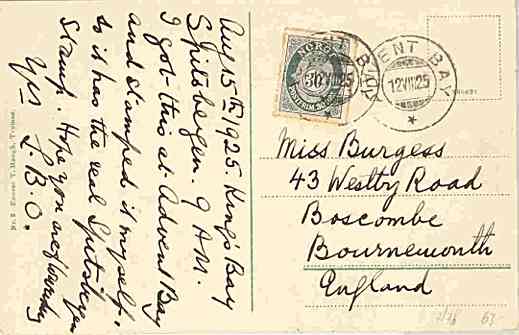 Aug 15th 1925. King's Bay
Spitsbergen. 9 A.M.
I got this at Advent Bay
and stamped it myself.
So it has the real Spitsbergen
Stamp. Hope you are
Yrs L.B.O.
No. 2. Eneret T. Tromsø.
NORGE
ENT BAY
12 VIII 25
Miss Burgess
43 Westby Road
Boscombe
Bournemouth
England